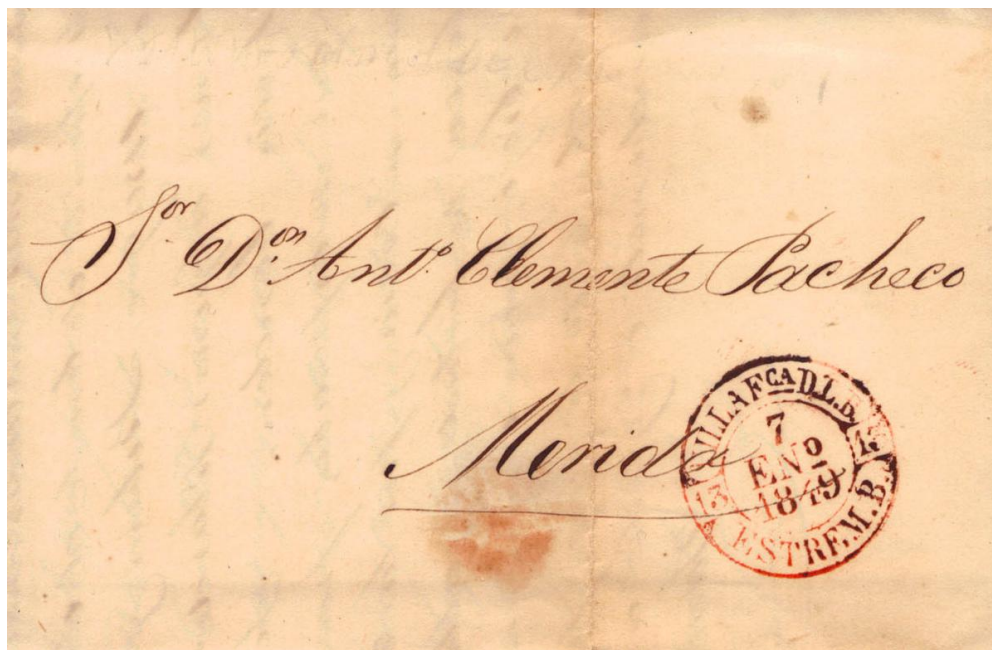 Sor Don Anto Clemente Pacheco
Merida
VILLAFCA D.L.B.
7
ENO
1849
13
ESTREM.B.